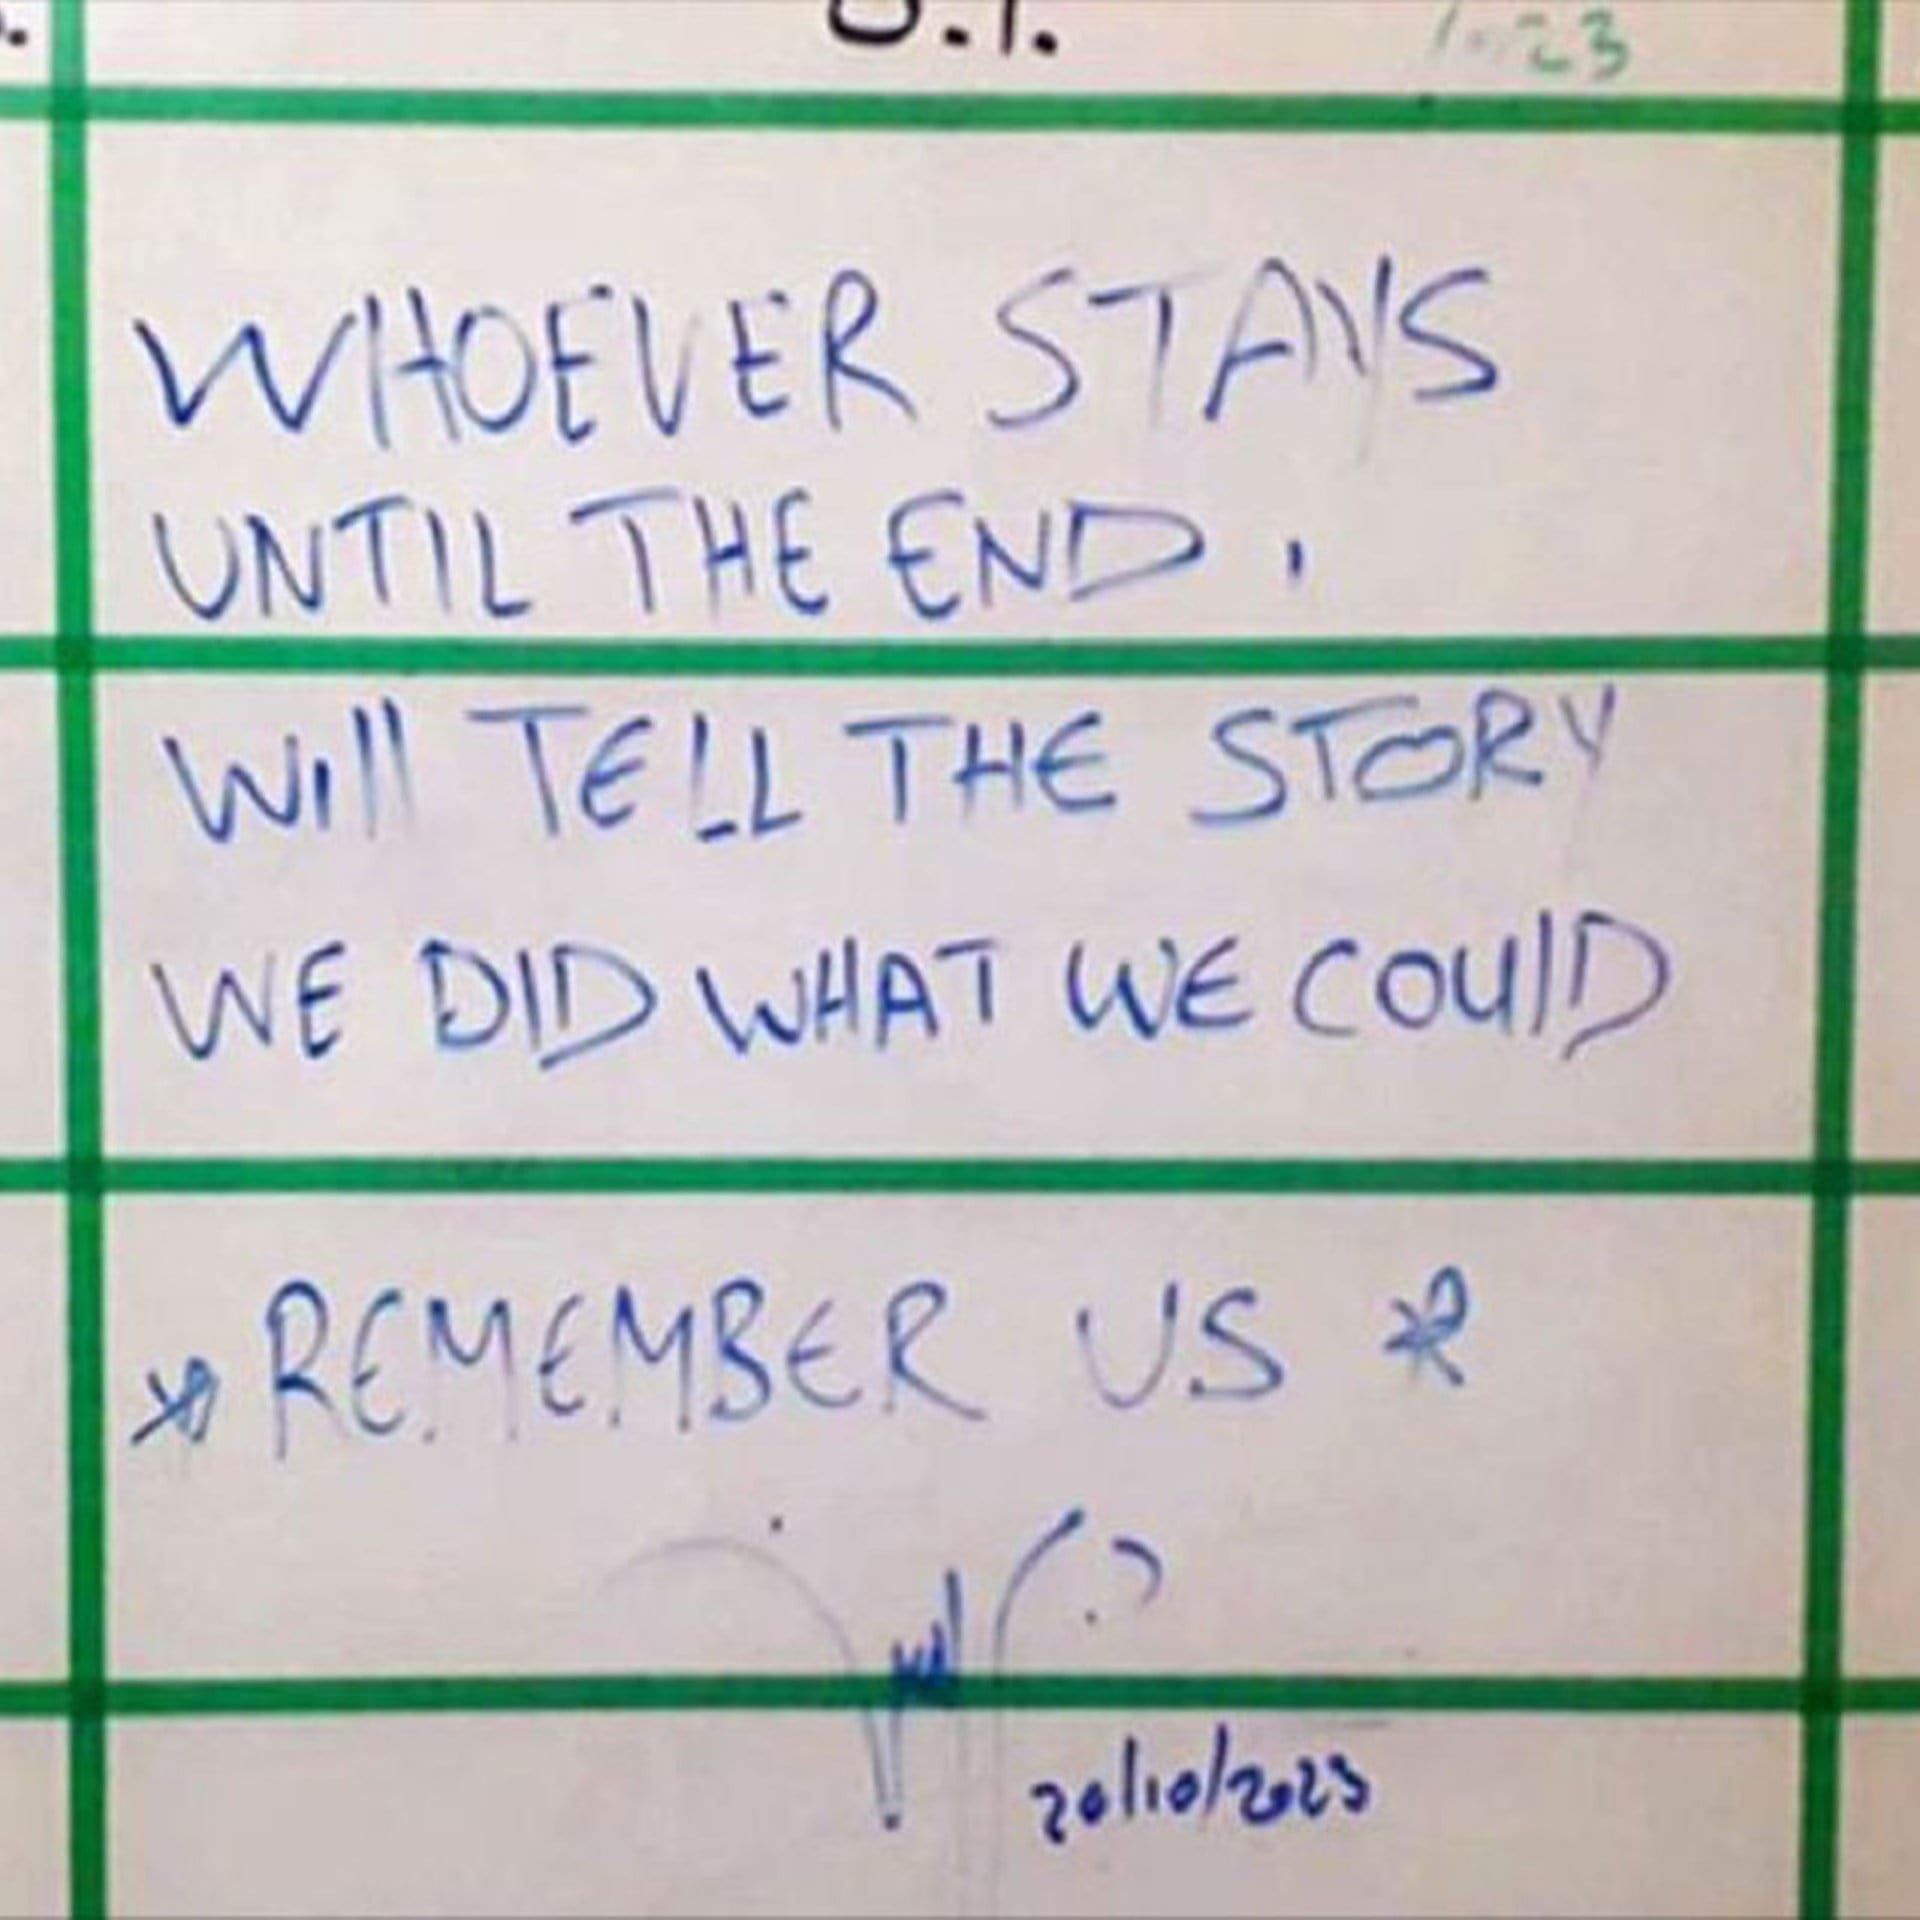 WHOEVER STAYS
UNTIL THE END.
Will TELL THE STORY
WE DID WHAT WE COUlD
* REMEMBER US *
20/10/2023